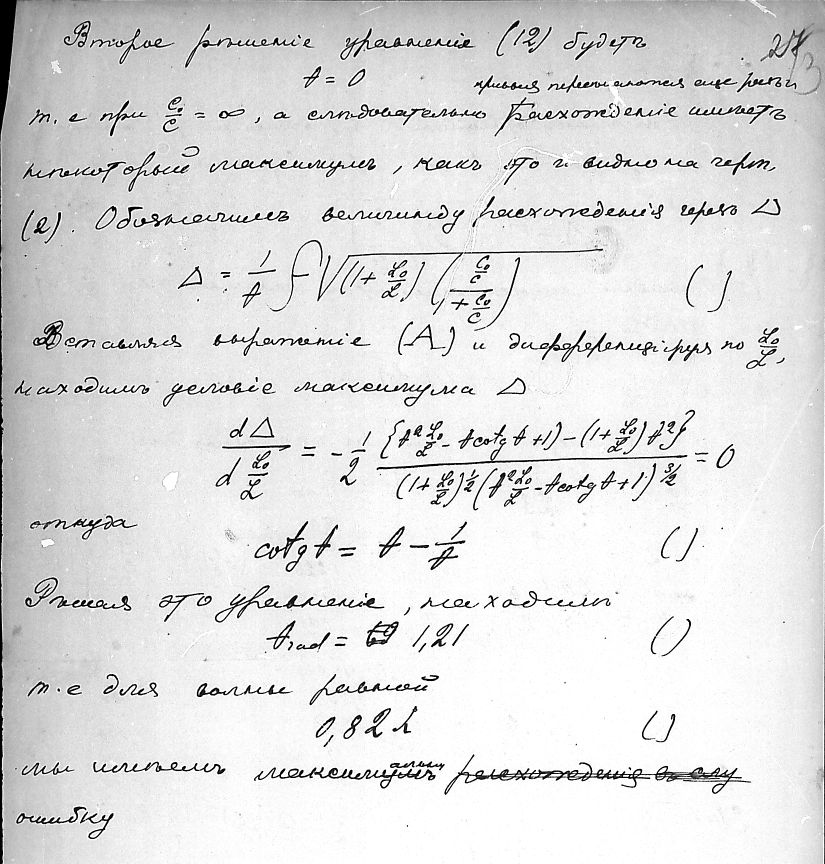 Второе решеніе уравненіе (12) будетъ
t = 0
кривыя пересѣкаются еще разъ и
т. е при C₀/C = ∞, а слѣдовательно расхожденіе имѣетъ
нѣкоторый максимумъ, какъ это и видно на черт.
(2). Обозначимъ величину расхожденія черезъ Δ
Δ = 1/t − √((1 + L₀/L) ((C₀/C)/(1 + C₀/C))) ( )
Вставляя выраженіе (A) и дифференціруя по L₀/L,
находимъ условіе максимума Δ
dΔ/d(L₀/L) = − 1/2 {(t² L₀/L − t cotg t + 1) − (1 + L₀/L) t²}/((1 + L₀/L)^½ (t² L₀/L − t cotg t + 1)^3/2) = 0
откуда
cotg t = t − 1/t ( )
Рѣшая это уравненіе, находимъ
t rad = 1,21 ( )
т. е для волны равной
0,82 λ ( )
мы имѣемъ максимумъ расхожденія въ слу
альную
ошибку